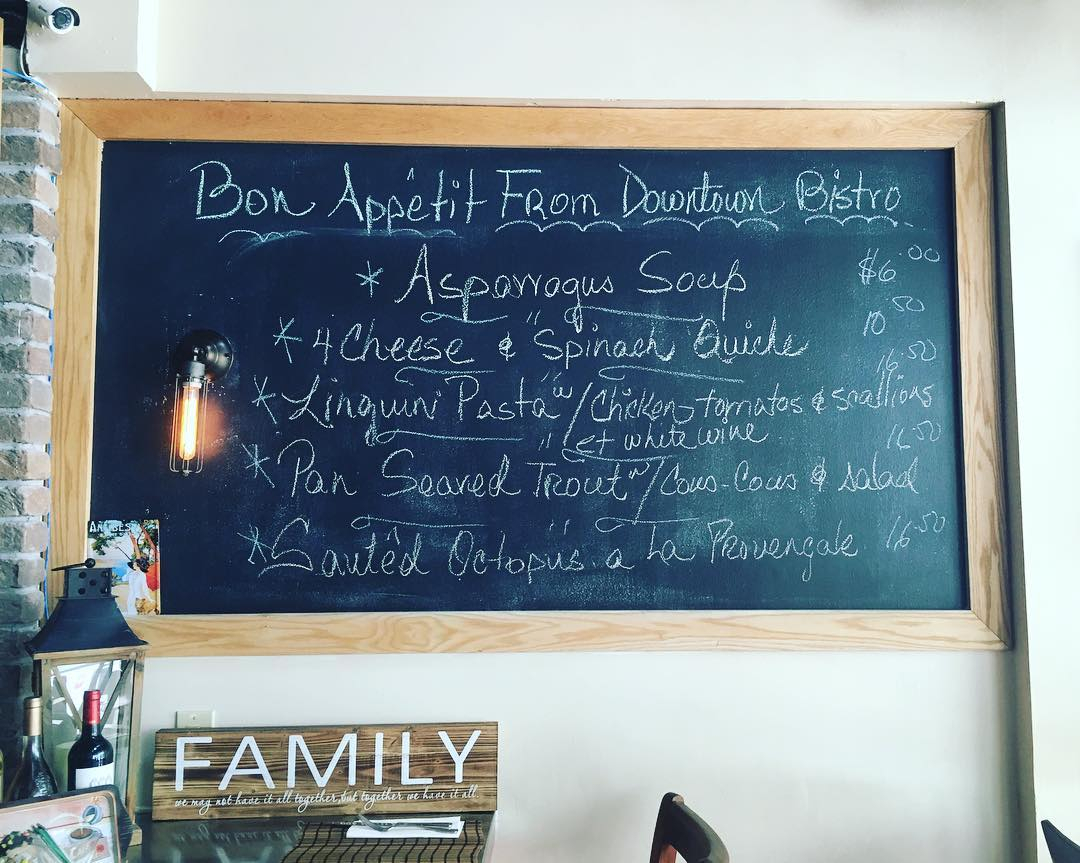 Bon Appêtit From Downtown Bistro
* Asparragus Soup $6.00
* 4 Cheese & Spinach Quiche 10.50
* Linguini Pasta w/ Chicken, tomatos & scallions 16.50
et white wine
* Pan Seared Trout w/ Cous-Cous & salad 16.50
* Sautêd Octopus a La Provençale 16.50
FAMILY
we may not have it all together, but together we have it all.